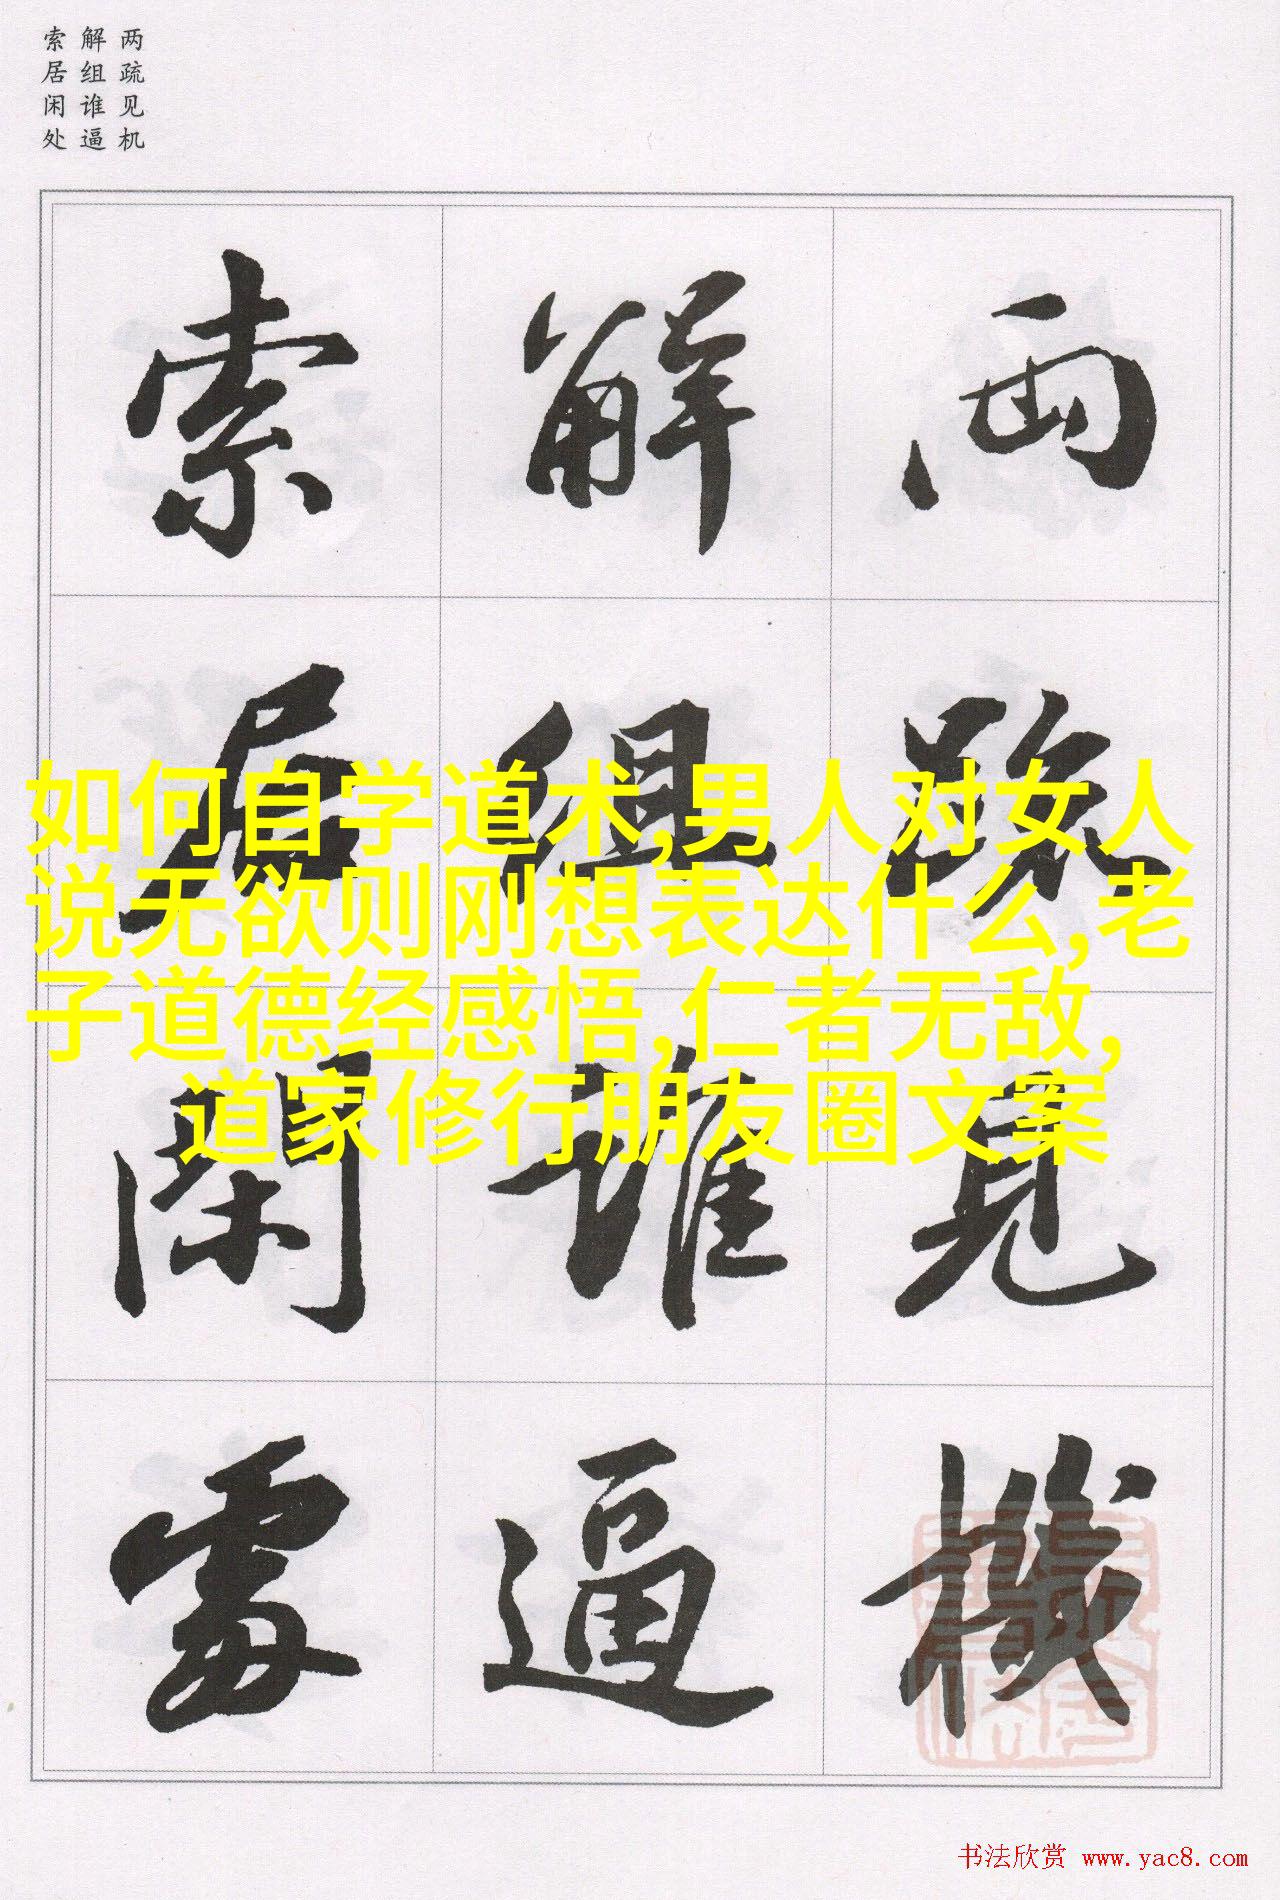 两疏见机
解组谁逼
索居闲处
两疏見機
解組誰逼
索居閑處
如何自学道术,男人对女人
说无欲则刚想表达什么,老
子道德经感悟,仁者无敌,
道家修行朋友圈文案
书法欣赏 www.yac8.com